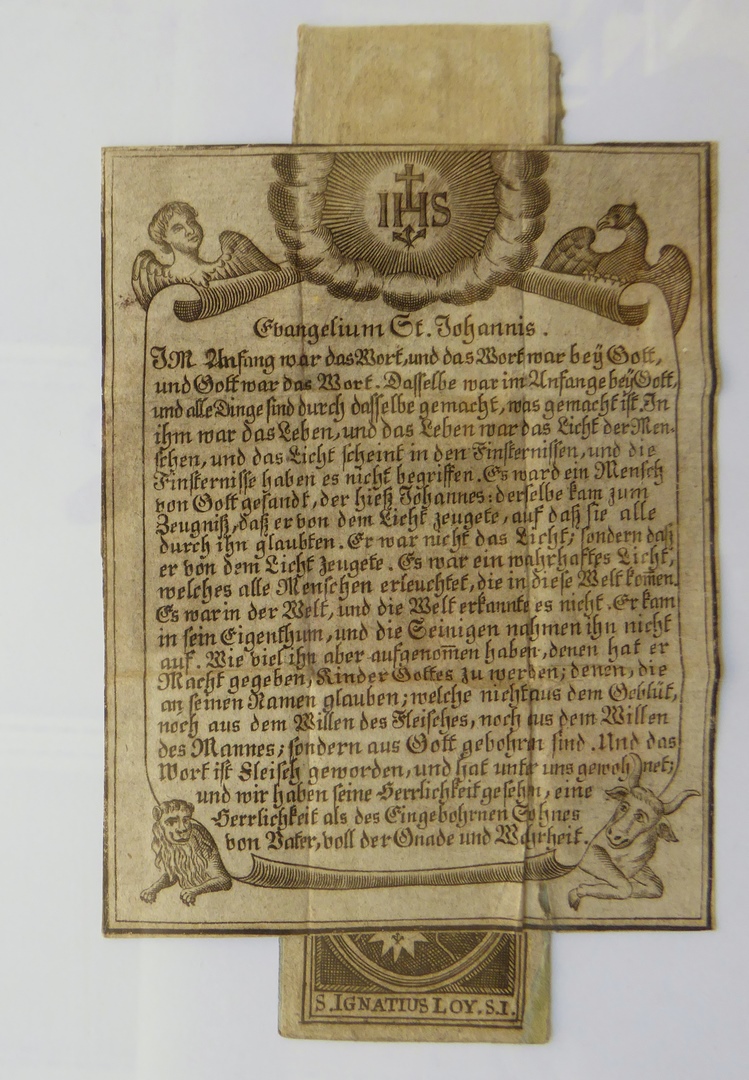 IHS
Evangelium St. Johannis.
IM Anfang war das Wort, und das Wort war beÿ Gott,
und Gott war das Wort. Dasselbe war im Anfange beÿ Gott,
und alle Dinge sind durch dasselbe gemacht, was gemacht ist. In
ihm war das Leben, und das Leben war das Licht der Men-
schen, und das Licht scheint in den Finsternissen, und die
Finsternisse haben es nicht begriffen. Es ward ein Mensch
von Gott gesandt, der hieß Johannes: derselbe kam zum
Zeugniß, daß er von dem Licht zeugete, auf daß sie alle
durch ihn glaubten. Er war nicht das Licht; sondern daß
er von dem Licht zeugete. Es war ein wahrhaftes Licht,
welches alle Menschen erleuchtet, die in diese Welt kom̄en.
Es war in der Welt, und die Welt erkannte es nicht. Er kam
in sein Eigenthum, und die Seinigen nahmen ihn nicht
auf. Wie viel ihn aber aufgenom̄en haben, denen hat er
Macht gegeben, Kinder Gottes zu werden; denen, die
an seinen Namen glauben; welche nicht aus dem Geblüt,
noch aus dem Willen des Fleisches, noch aus dem Willen
des Mannes; sondern aus Gott gebohrn sind. Und das
Wort ist Fleisch geworden, und hat unter uns gewohnet;
und wir haben seine Herrlichkeit gesehn, eine
Herrlichkeit als des Eingebohrnen Sohnes
von Vater, voll der Gnade und Wahrheit.
S. IGNATIUS LOY. S.I.